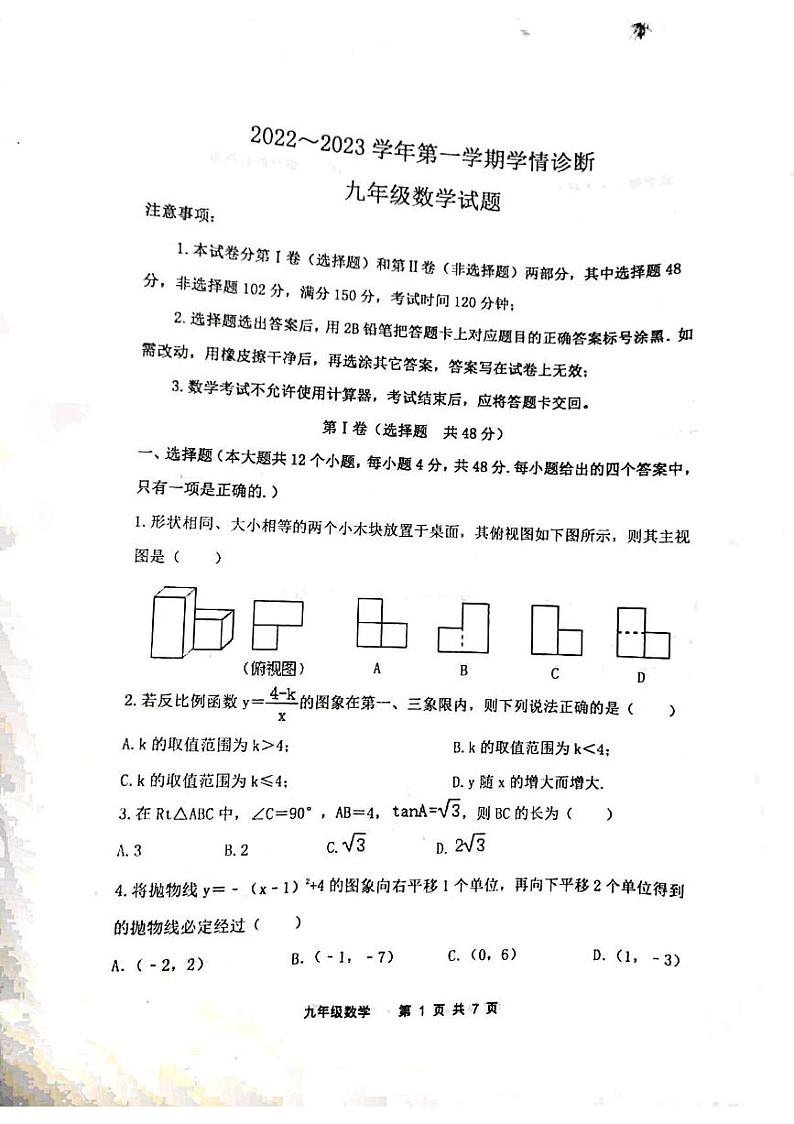 2022～2023 学年第一学期学情诊断
九年级数学试题
注意事项：
1. 本试卷分第Ⅰ卷（选择题）和第Ⅱ卷（非选择题）两部分，其中选择题 48
分，非选择题 102 分，满分 150 分，考试时间 120 分钟；
2. 选择题选出答案后，用 2B 铅笔把答题卡上对应题目的正确答案标号涂黑．如
需改动，用橡皮擦干净后，再选涂其它答案，答案写在试卷上无效；
3. 数学考试不允许使用计算器，考试结束后，应将答题卡交回。
第Ⅰ卷（选择题 共 48 分）
一、选择题（本大题共 12 个小题，每小题 4 分，共 48 分．每小题给出的四个答案中，
只有一项是正确的．）
1. 形状相同、大小相等的两个小木块放置于桌面，其俯视图如下图所示，则其主视
图是（ ）
（俯视图） A B C D
2. 若反比例函数 y＝(4-k)/x 的图象在第一、三象限内，则下列说法正确的是（ ）
A. k 的取值范围为 k＞4； B. k 的取值范围为 k＜4；
C. k 的取值范围为 k≤4； D. y 随 x 的增大而增大.
3. 在 Rt△ABC 中，∠C＝90°，AB＝4，tanA=√3，则 BC 的长为（ ）
A. 3 B. 2 C. √3 D. 2√3
4. 将抛物线 y＝﹣（x﹣1）²+4 的图象向右平移 1 个单位，再向下平移 2 个单位得到
的抛物线必定经过（ ）
A.（﹣2，2） B.（﹣1，﹣7） C.（0，6） D.（1，﹣3）
九年级数学 第 1 页 共 7 页